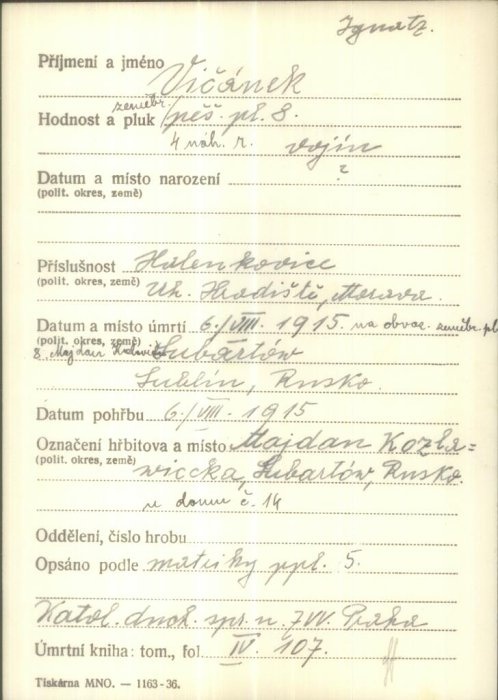 Ignatz.
Příjmení a jméno Vičánek
zeměbr.
Hodnost a pluk pěš. pl. 8.
4 náh. r. vojín
Datum a místo narození ?
(polit. okres, země)
Příslušnost Halenkovice
(polit. okres, země) Uh. Hradiště, Morava.
Datum a místo úmrtí 6./VIII. 1915 na obvaz. zeměbr. pl.
(polit. okres, země)
8. Majdan Lubartów
Lublin, Rusko.
Datum pohřbu 6./VIII. 1915
Označení hřbitova a místo Majdan Kozła=
(polit. okres, země) wiecka, Lubartów, Rusko.
u domu č. 14
Oddělení, číslo hrobu
Opsáno podle matriky ppl. 5.
Katol. duch. spr. n. ZVV. Praha
Úmrtní kniha: tom., fol. IV. 107.
Tiskárna MNO. — 1163-36.